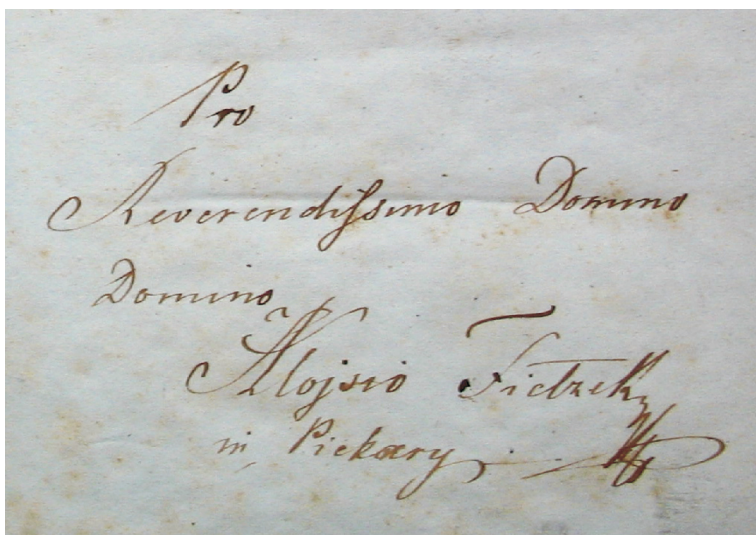 Pro
Reverendiſsimo Domino
Domino
Alojsio Fietzek
in Piekary